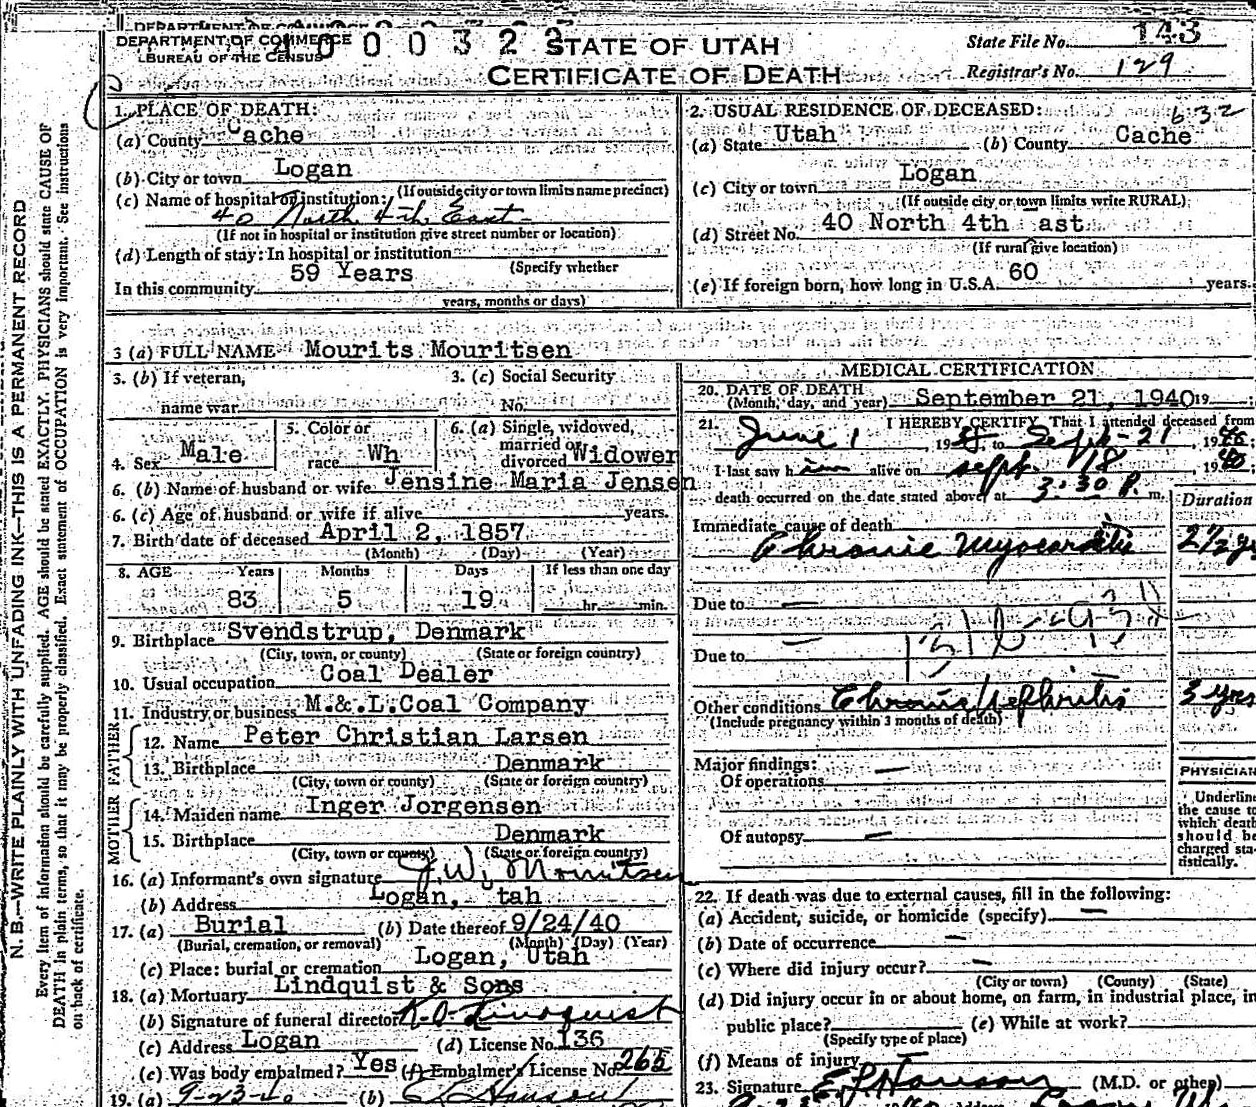 DEPARTMENT OF COMMERCE
BUREAU OF THE CENSUS
STATE OF UTAH
CERTIFICATE OF DEATH
State File No. 143
Registrar's No. 129
N. B.—WRITE PLAINLY WITH UNFADING INK—THIS IS A PERMANENT RECORD
Every item of information should be carefully supplied. AGE should be stated EXACTLY. PHYSICIANS should state CAUSE OF
DEATH in plain terms, so that it may be properly classified. Exact statement of OCCUPATION is very important. See instructions
on back of certificate.
1. PLACE OF DEATH:
(a) County Cache
(b) City or town Logan
(If outside city or town limits name precinct)
(c) Name of hospital or institution:
40 North 4th East
(If not in hospital or institution give street number or location)
(d) Length of stay: In hospital or institution
59 Years (Specify whether
In this community
years, months or days)
2. USUAL RESIDENCE OF DECEASED:
6-32
(a) State Utah (b) County Cache
(c) City or town Logan
(If outside city or town limits write RURAL)
(d) Street No. 40 North 4th ast
(If rural give location)
(e) If foreign born, how long in U.S.A. 60 years.
3 (a) FULL NAME Mourits Mouritsen
3. (b) If veteran,
name war
3. (c) Social Security
No.
4. Sex Male
5. Color or
race Wh
6. (a) Single, widowed,
married or
divorced Widower
6. (b) Name of husband or wife Jensine Maria Jensen
6. (c) Age of husband or wife if alive years.
7. Birth date of deceased April 2, 1857
(Month) (Day) (Year)
8. AGE Years Months Days If less than one day
83 5 19 hr. min.
9. Birthplace Svendstrup, Denmark
(City, town, or county) (State or foreign country)
10. Usual occupation Coal Dealer
11. Industry or business M.&.L.Coal Company
FATHER
12. Name Peter Christian Larsen
13. Birthplace Denmark
(City, town or county) (State or foreign country)
MOTHER
14. Maiden name Inger Jorgensen
15. Birthplace Denmark
(City, town or county) (State or foreign country)
16. (a) Informant's own signature J.W. Mouritsen
(b) Address Logan, tah
17. (a) Burial (b) Date thereof 9/24/40
(Burial, cremation, or removal) (Month) (Day) (Year)
(c) Place: burial or cremation Logan, Utah
18. (a) Mortuary Lindquist & Sons
(b) Signature of funeral director Lindquist
(c) Address Logan (d) License No. 136
(e) Was body embalmed? Yes (f) Embalmer's License No 265
19. (a) 9-23-40 (b)
MEDICAL CERTIFICATION
20. DATE OF DEATH
(Month, day, and year) September 21, 1940 19
21. I HEREBY CERTIFY That I attended deceased from
June 1, 19 to Sept-21, 1940
I last saw him alive on Sept. 18, 1940
death occurred on the date stated above, at 3:30 P. m.
Duration
Immediate cause of death
Chronic Myocarditis 2 1/2 yrs
Due to —
Due to —
Other conditions Chronic Nephritis 3 yrs
(Include pregnancy within 3 months of death)
Major findings:
Of operations —
Of autopsy —
PHYSICIAN
Underline
the cause to
which death
should be
charged sta-
tistically.
22. If death was due to external causes, fill in the following:
(a) Accident, suicide, or homicide (specify) —
(b) Date of occurrence —
(c) Where did injury occur? —
(City or town) (County) (State)
(d) Did injury occur in or about home, on farm, in industrial place, in
public place? (e) While at work?
(Specify type of place)
(f) Means of injury
23. Signature (M.D. or other)